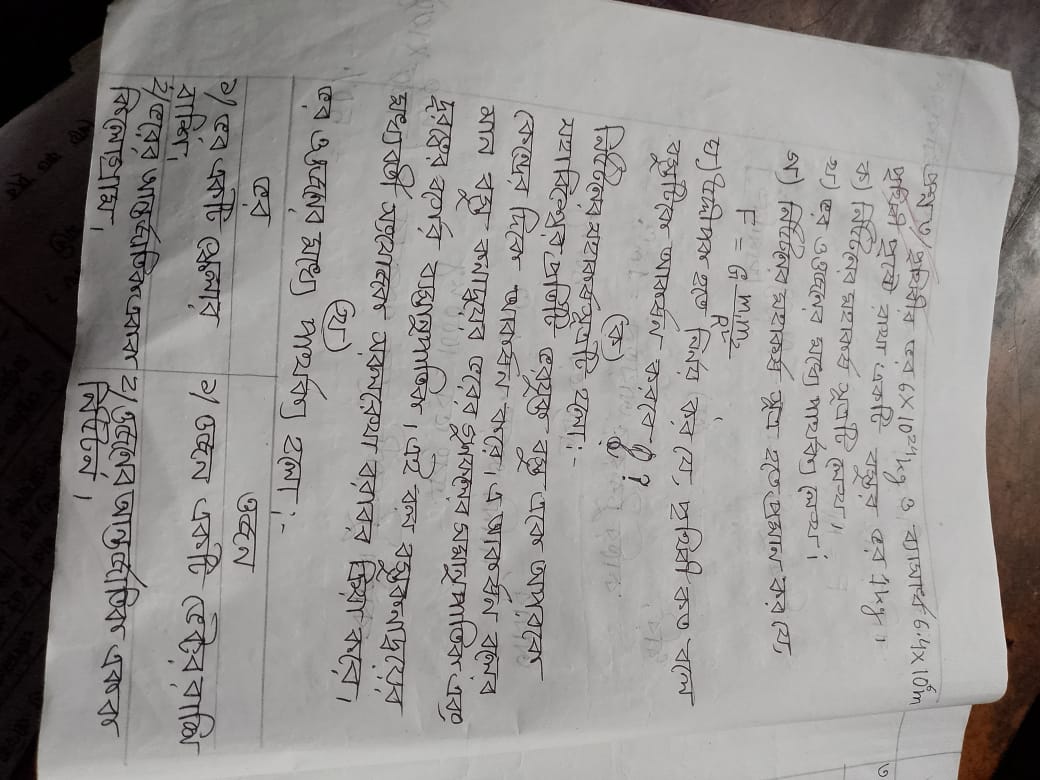 প্রশ্ন ১/ পৃথিবীর ভর 6 X 10²⁴ kg ও ব্যাসার্ধ 6.4 X 10⁶ m
পৃথিবী পৃষ্ঠে রাখা একটি বস্তুর ভর 1 kg।
ক) নিউটনের মহাকর্ষ সূত্রটি লেখ।
খ) ভর ও ওজনের মধ্যে পার্থক্য লেখ।
গ) নিউটনের মহাকর্ষ সূত্র হতে প্রমাণ কর যে,
F = G m₁m₂/R²
ঘ) উদ্দীপক হতে নির্ণয় কর যে, পৃথিবী কত বলে
বস্তুটিকে আকর্ষন করবে?
(ক)
নিউটনের মহাকর্ষ সূত্রটি হলো:-
মহাবিশ্বের প্রতিটি ভরযুক্ত বস্তু একে অপরকে
কেন্দ্রের দিকে আকর্ষন করে। এ আকর্ষন বলের
মান বস্তু কনাদ্বয়ের ভরের গুনফলের সমানুপাতিক এবং
দূরত্বের বর্গের ব্যস্তানুপাতিক। এই বল বস্তুকনাদ্বয়ের
মধ্যবর্তী সংযোজক সরলরেখা বরাবর ক্রিয়া করে।
(খ)
ভর ও ওজনের মধ্যে পার্থক্য হলো:-
ভর
ওজন
১/ ভর একটি স্কেলার
রাশি।
১/ ওজন একটি ভেক্টর রাশি
২/ ভরের আন্তর্জাতিক একক
কিলোগ্রাম।
২/ ওজনের আন্তর্জাতিক একক
নিউটন।